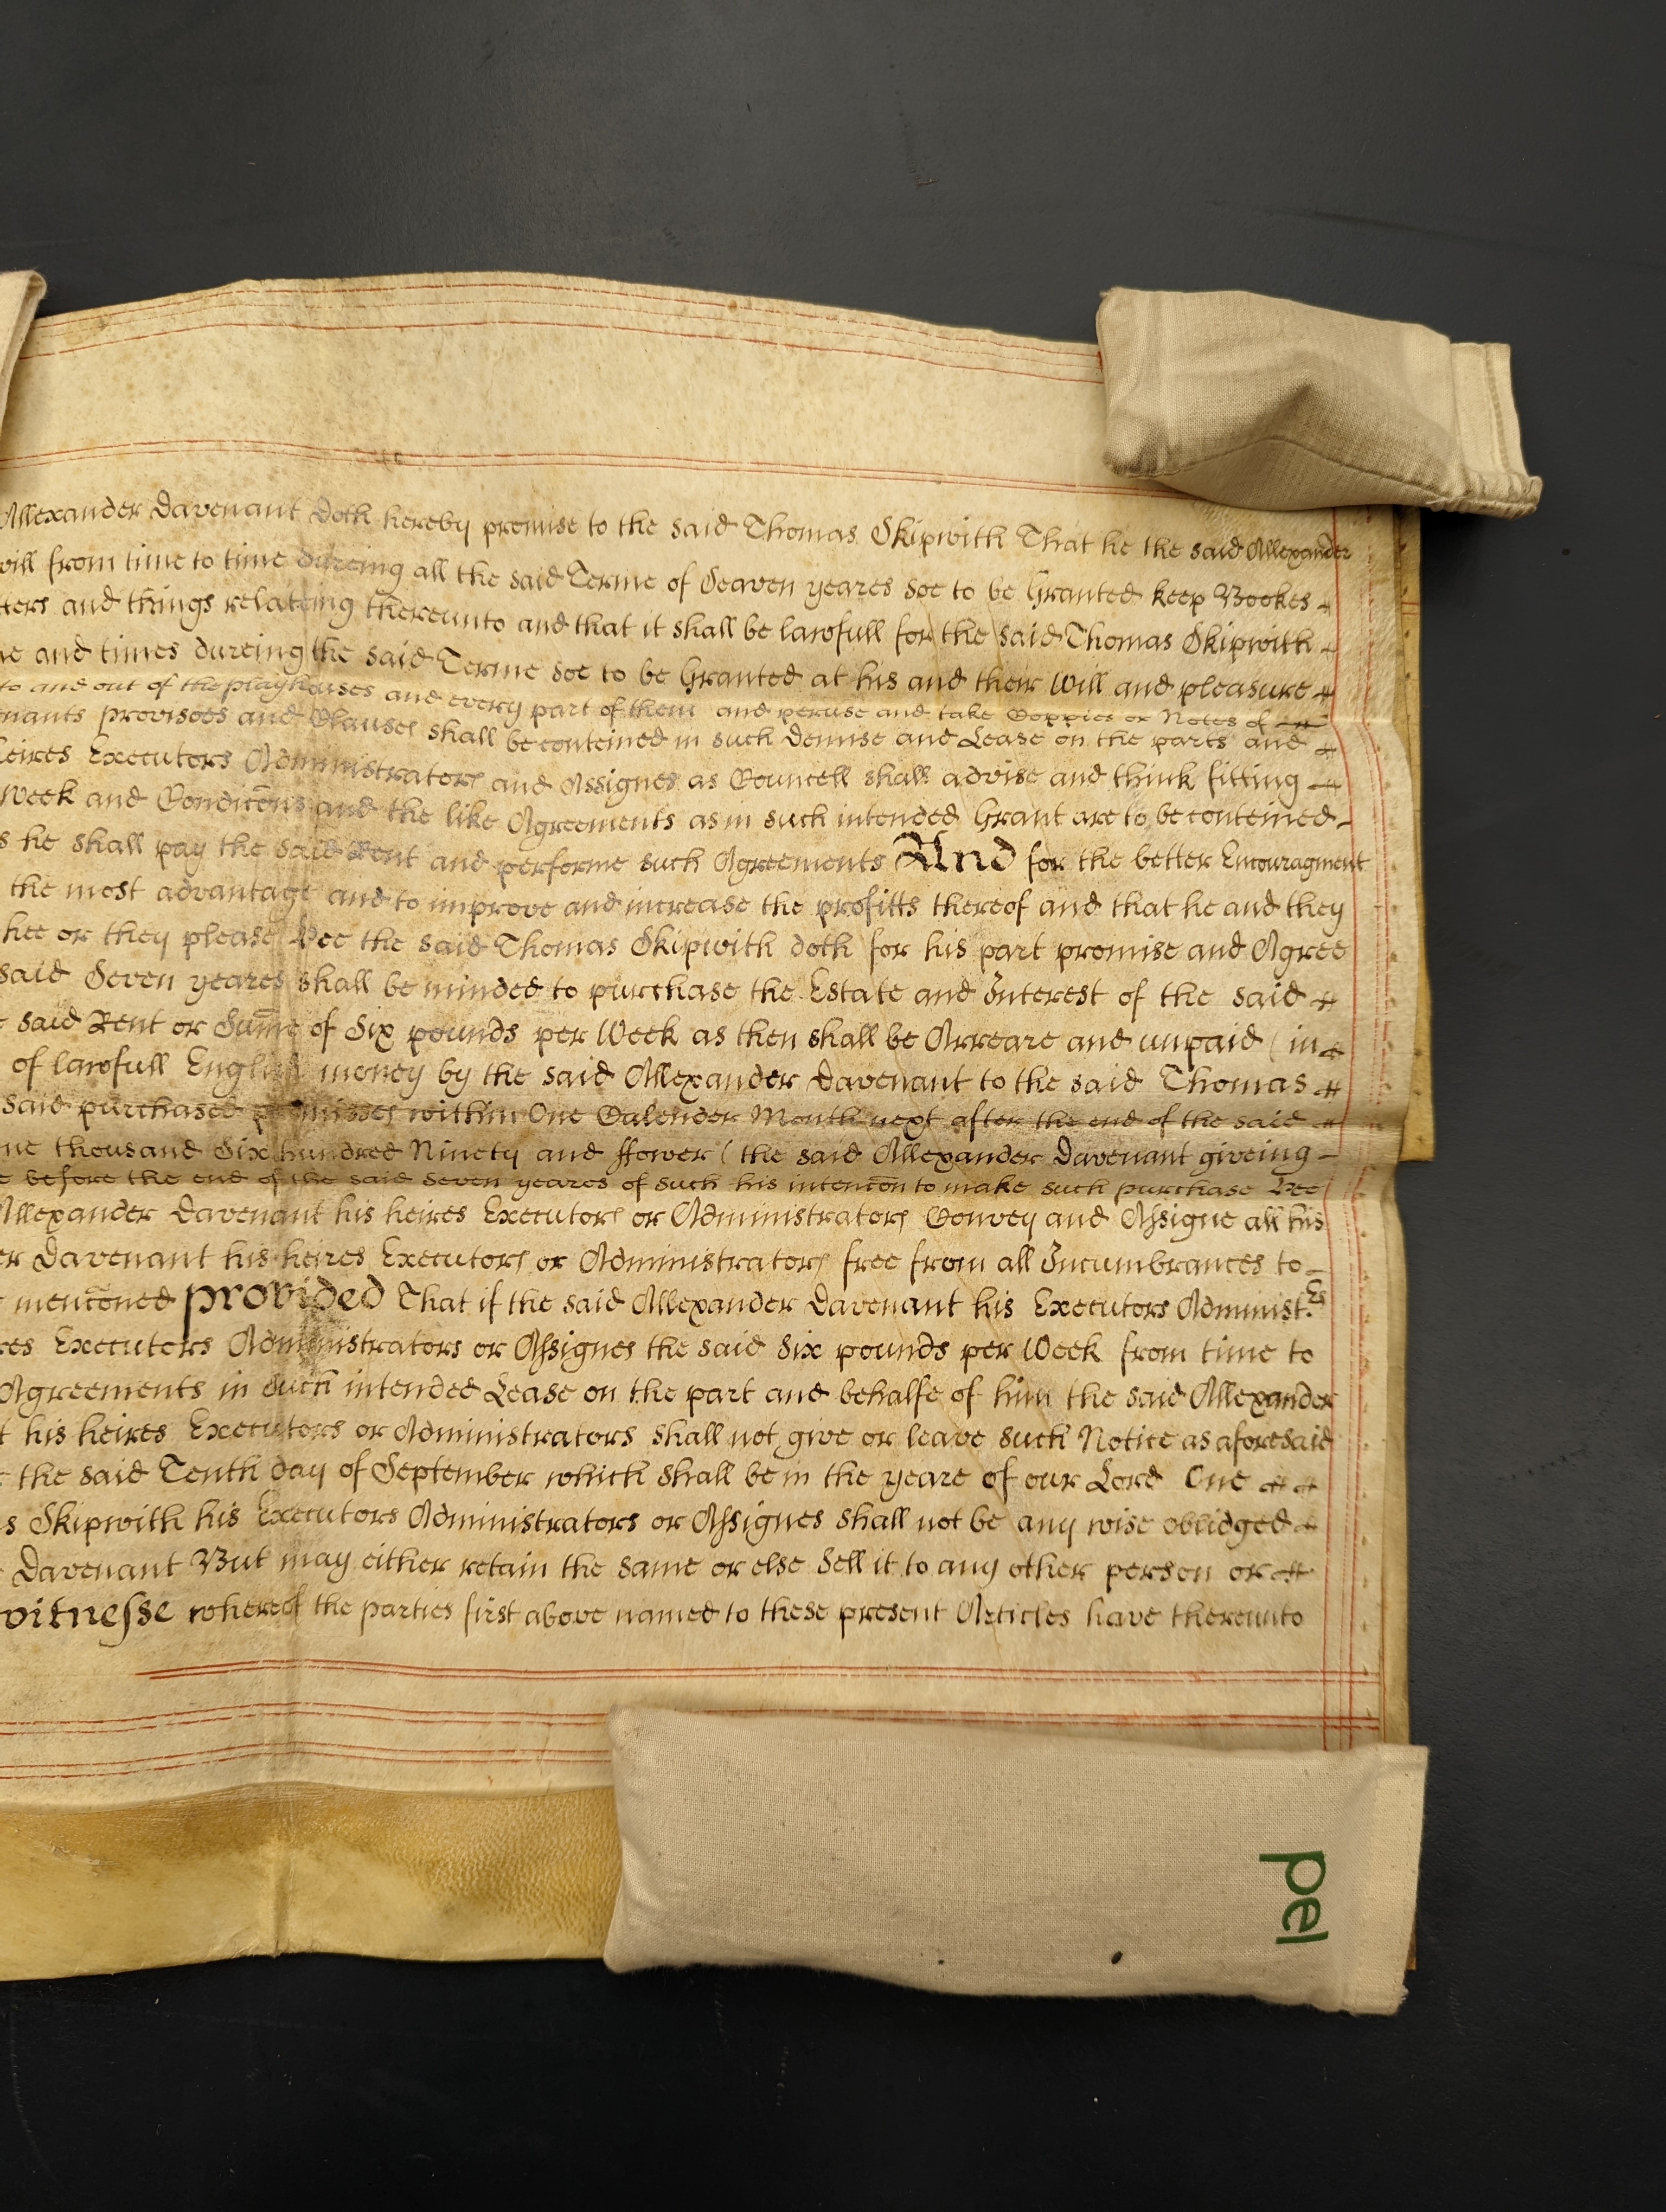 Allexander Davenant doth hereby promise to the said Thomas Skipwith That he the said Allexander
will from time to time dureing all the said Terme of Seaven yeares soe to be Granted keep Bookes
ters and things relateing thereunto and that it shall be lawfull for the said Thomas Skipwith
me and times dureing the said Terme soe to be Granted at his and their Will and pleasure
to and out of the playhouses and every part of them and peruse and take Coppies or Notes of
nants provisoes and Clauses shall be conteined in such Demise and Lease on the parts and
heires Executors Administrators and Assignes as Councell shall advise and think fitting
Week and Condic̄ons and the like Agreements as in such intended Grant are to be conteined
s he shall pay the said Rent and performe such Agreements And for the better Encouragment
the most advantage and to improve and increase the profitts thereof and that he and they
hee or they please Hee the said Thomas Skipwith doth for his part promise and Agree
said Seven yeares shall be minded to purchase the Estate and Interest of the said
said Rent or Sum̄e of Six pounds per Week as then shall be Arreare and unpaid ( in
of lawfull English money by the said Allexander Davenant to the said Thomas
said purchased premisses within One Calender Month next after the end of the said
ne thousand Six hundred Ninety and ffower ( the said Allexander Davenant giveing
e before the end of the said seven yeares of such his intenc̄on to make such purchase Hee
Allexander Davenant his heires Executors or Administrators Convey and Assigne all his
er Davenant his heires Executors or Administrators free from all Incumbrances to
menc̄oned provided That if the said Allexander Davenant his Executors Administ.rs
res Executors Administrators or Assignes the said Six pounds per Week from time to
Agreements in such intended Lease on the part and behalfe of him the said Allexander
t his heires Executors or Administrators shall not give or leave such Notice as aforesaid
the said Tenth day of September which shall be in the yeare of our Lord One
s Skipwith his Executors Administrators or Assignes shall not be any wise obliged
Davenant But may either retain the same or else Sell it to any other person or
witnesse whereof the parties first above named to these present Articles have thereunto
pel